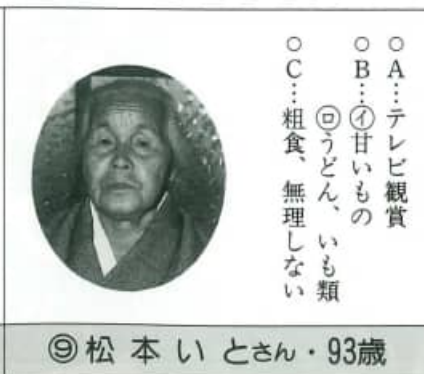 ○A…テレビ観賞
○B…㋑甘いもの
㋺うどん、いも類
○C…粗食、無理しない
⑨松本いとさん・93歳